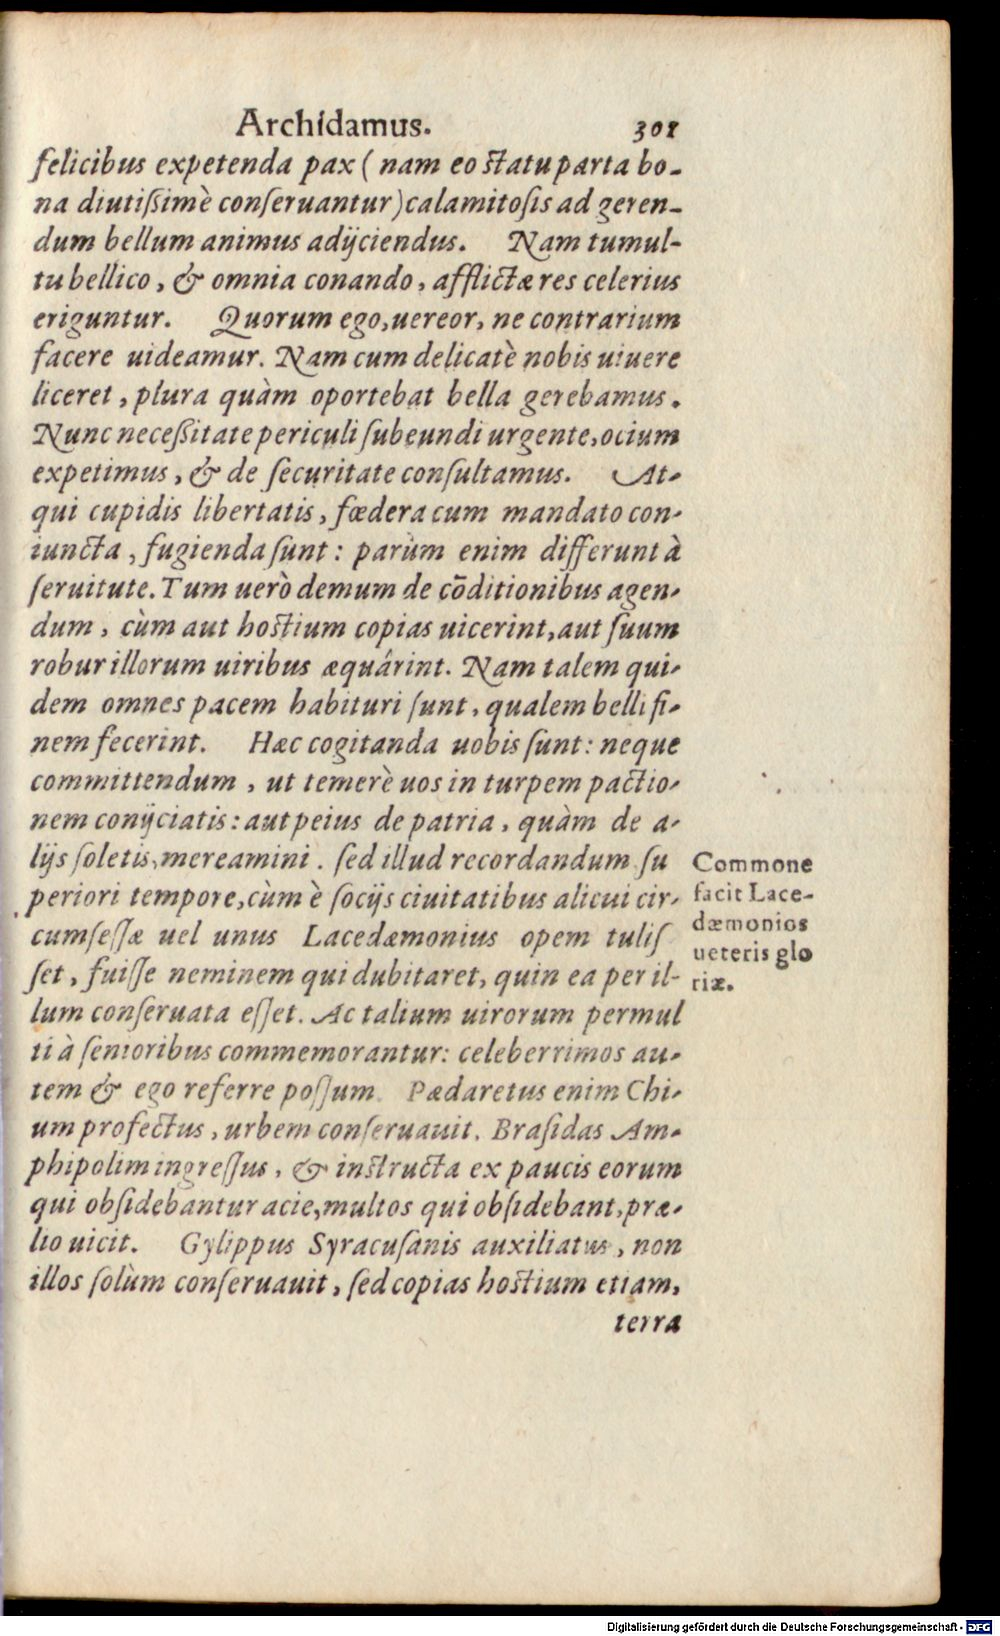 Archidamus. 301
felicibus expetenda pax (nam eo ſtatu parta bo-
na diutiſsimè conſeruantur) calamitoſis ad geren-
dum bellum animus adijciendus. Nam tumul-
tu bellico, & omnia conando, afflictæ res celerius
eriguntur. Quorum ego, uereor, ne contrarium
facere uideamur. Nam cum delicatè nobis uiuere
liceret, plura quàm oportebat bella gerebamus.
Nunc neceſsitate periculi ſubeundi urgente, ocium
expetimus, & de ſecuritate conſultamus. At-
qui cupidis libertatis, fœdera cum mandato con-
iuncta, fugienda ſunt: parùm enim differunt à
ſeruitute. Tum uerò demum de cōditionibus agen-
dum, cùm aut hoſtium copias uicerint, aut ſuum
robur illorum uiribus æquârint. Nam talem qui-
dem omnes pacem habituri ſunt, qualem belli fi-
nem fecerint. Hæc cogitanda uobis ſunt: neque
committendum, ut temerè uos in turpem pactio-
nem conijciatis: aut peius de patria, quàm de a-
lijs ſoletis, mereamini. ſed illud recordandum ſu
periori tempore, cùm è ſocijs ciuitatibus alicui cir-
cumſeſſæ uel unus Lacedæmonius opem tuliſ
ſet, fuiſſe neminem qui dubitaret, quin ea per il-
lum conſeruata eſſet. Ac talium uirorum permul
ti à ſenioribus commemorantur: celeberrimos au-
tem & ego referre poſſum. Pædaretus enim Chi-
um profectus, urbem conſeruauit. Braſidas Am-
phipolim ingreſſus, & inſtructa ex paucis eorum
qui obſidebantur acie, multos qui obſidebant, præ-
lio uicit. Gylippus Syracuſanis auxiliatus, non
illos ſolùm conſeruauit, ſed copias hoſtium etiam,
terra
Commone
facit Lace-
dæmonios
ueteris glo
riæ.
Digitalisierung gefördert durch die Deutsche Forschungsgemeinschaft - DFG